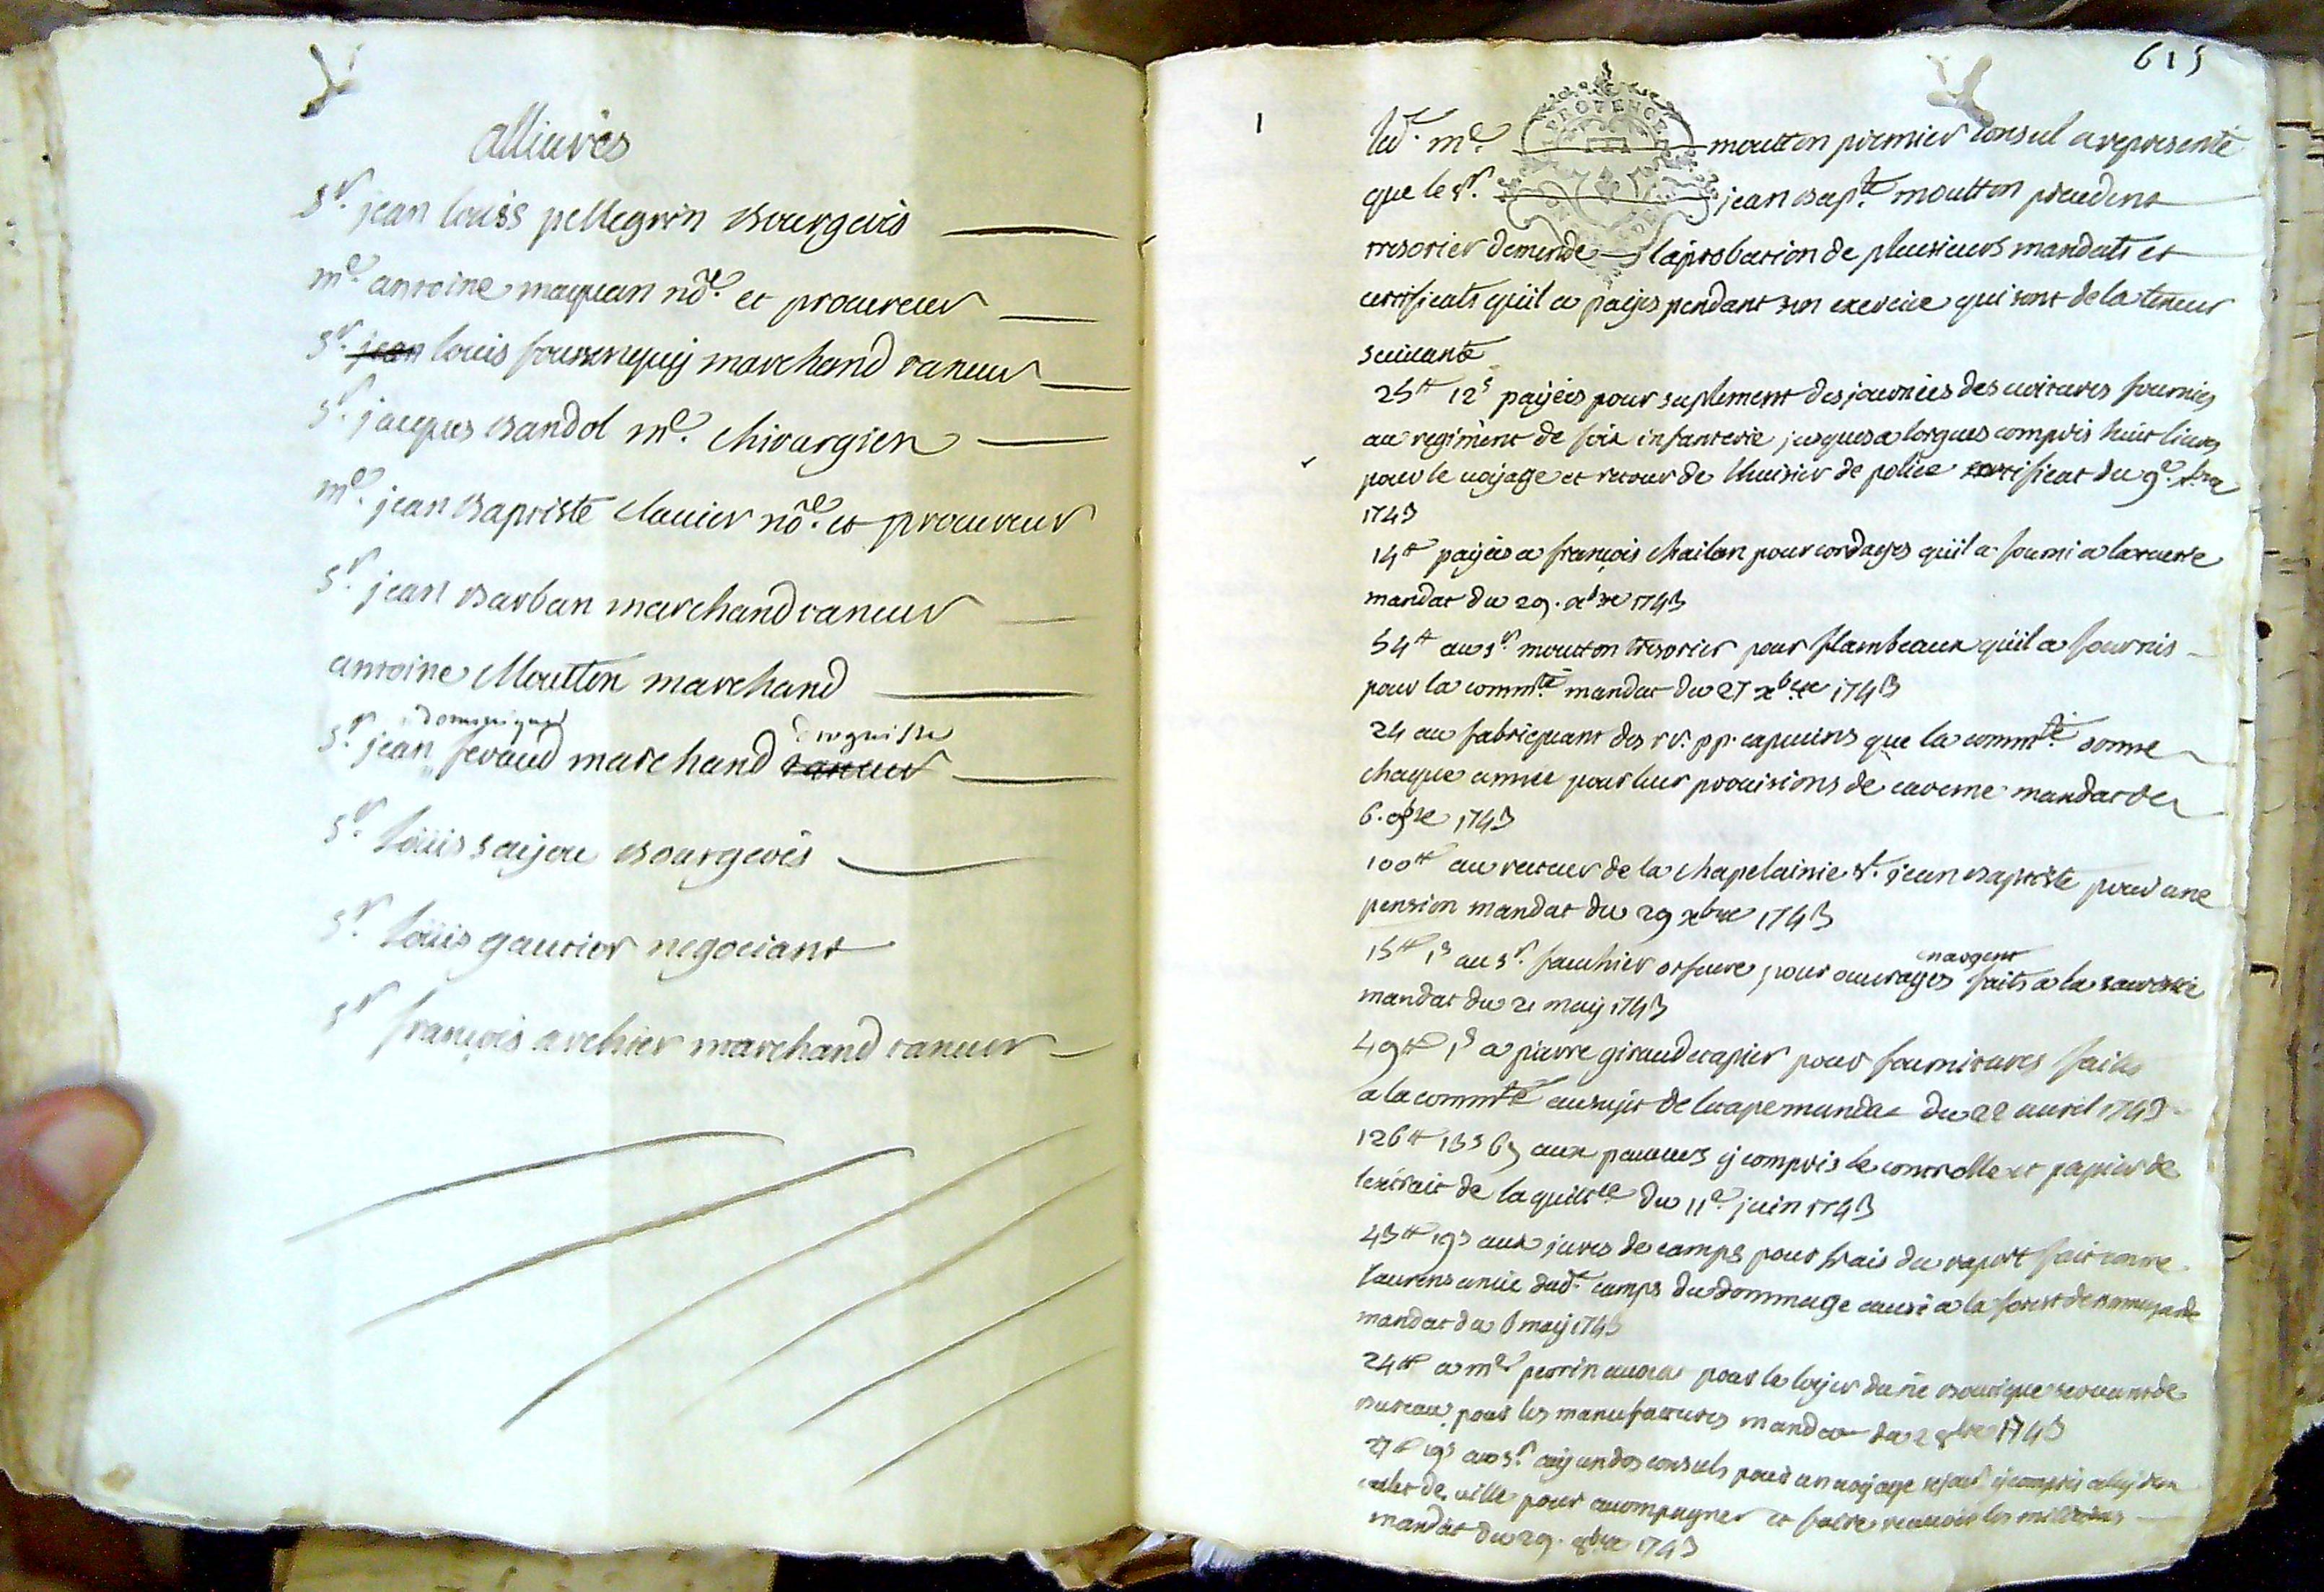 alliurés
Sr. jean louis pellegrin bourgeois
me. antoine maquan nore. et procureur
Sr. jean louis fournequy marchand taneur
Sr. jacques bandol me. chirurgien
me. jean baptiste clavier nore. et procureur
Sr. jean barban marchand taneur
antoine Moutton marchand
dominique droguiste
Sr. jean feraud marchand taneur
Sr. Loüis saijou bourgeois
Sr. Loüis gautier negociant
Sr françois archier marchand taneur
615
1
PROVENCE
led. me. moutton premier consul a representé
que le sr. jean bapte. moutton precedent
tresorier demende laprobation de plusieurs mandats et
certificats quil a payés pendant son exercice qui sont de la teneur
suiuante
25tt 12s payées pour suplement des journées des uoitures fournies
au regiment de foix infanterie jusques a lorgues compris huit liures
pour le uoyage et retour de lhuissier de police certificat du 9e
1743
14tt payées a françois chailan pour cordages quil a fourni a
mandat du 29. xbre 1743
54tt au sr. moutton tresorier pour flambeaux quil a fournis
pour la commté mandat du 27 xbre 1743
24 au fabriquant des rr. pp. capucins que la commté. donne
chaque année pour leur prouisions de careme mandat du
6. 9bre 1743
100tt au recteur de la chapelainie st. jean baptiste pour une
pension mandat du 29 xbre 1743
en argent
15tt 1s au sr. fauchier orfeure pour ouurages faits a la
mandat du 21 may 1743
49tt 1s a pierre giraud drapier pour fournitures faites
a la commté au sujet de mandat du 22 auril 1743
126tt 13s 6d aux pauures y compris le controlle et papier de
lextrait de la quittce du 11e juin 1743
43tt 19s aux jures de camps pour frais du raport fait contre
laurens dud. camps du dommage causé a la forest de
mandat du 6 may 1743
24tt a me perrin pour le loyer dune boutique seruant de
bureau pour les manufactures mandat du 2 8bre 1743
19s au sr. des consuls pour un uoyage y compris
ualet de uille pour acompagner et faire receuoir les miliciens
mandat du 29. 8bre 1743